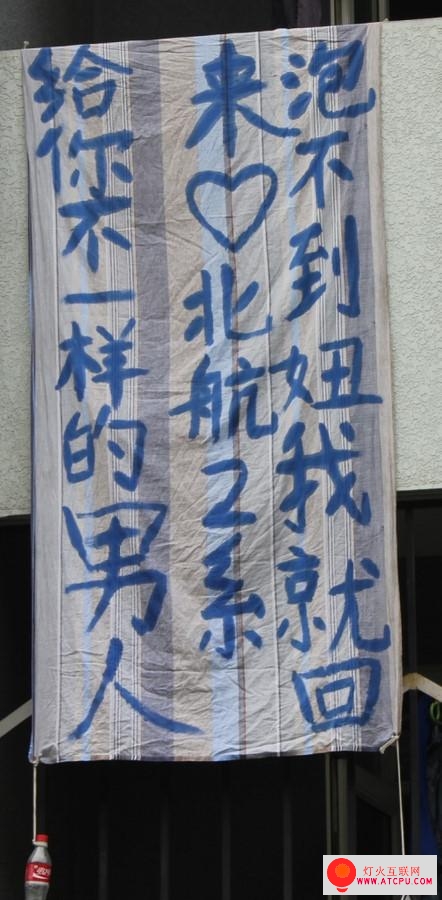 泡不到妞我就回
来♡北航2系
给你不一样的男人
灯火互联网
WWW.ATCPU.COM